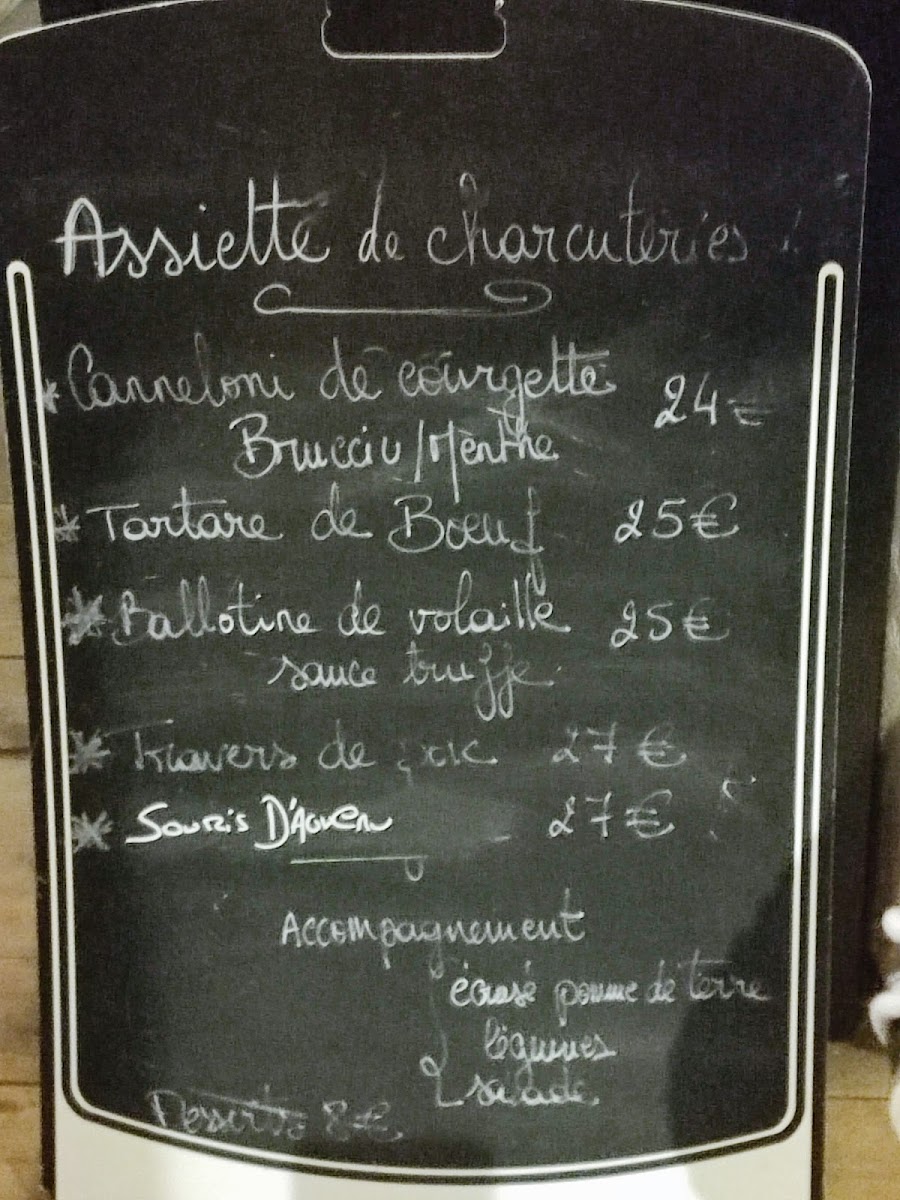 Assiette de charcuteries
* Canneloni de courgette 24€
Brucciu/Menthe
* Tartare de Boeuf 25€
* Ballotine de volaille 25€
sauce truffe
* Travers de porc 27€
* Souris D'Agneau 27€
Accompagnement
écrasé pomme de terre
légumes
salade
Desserts 8€